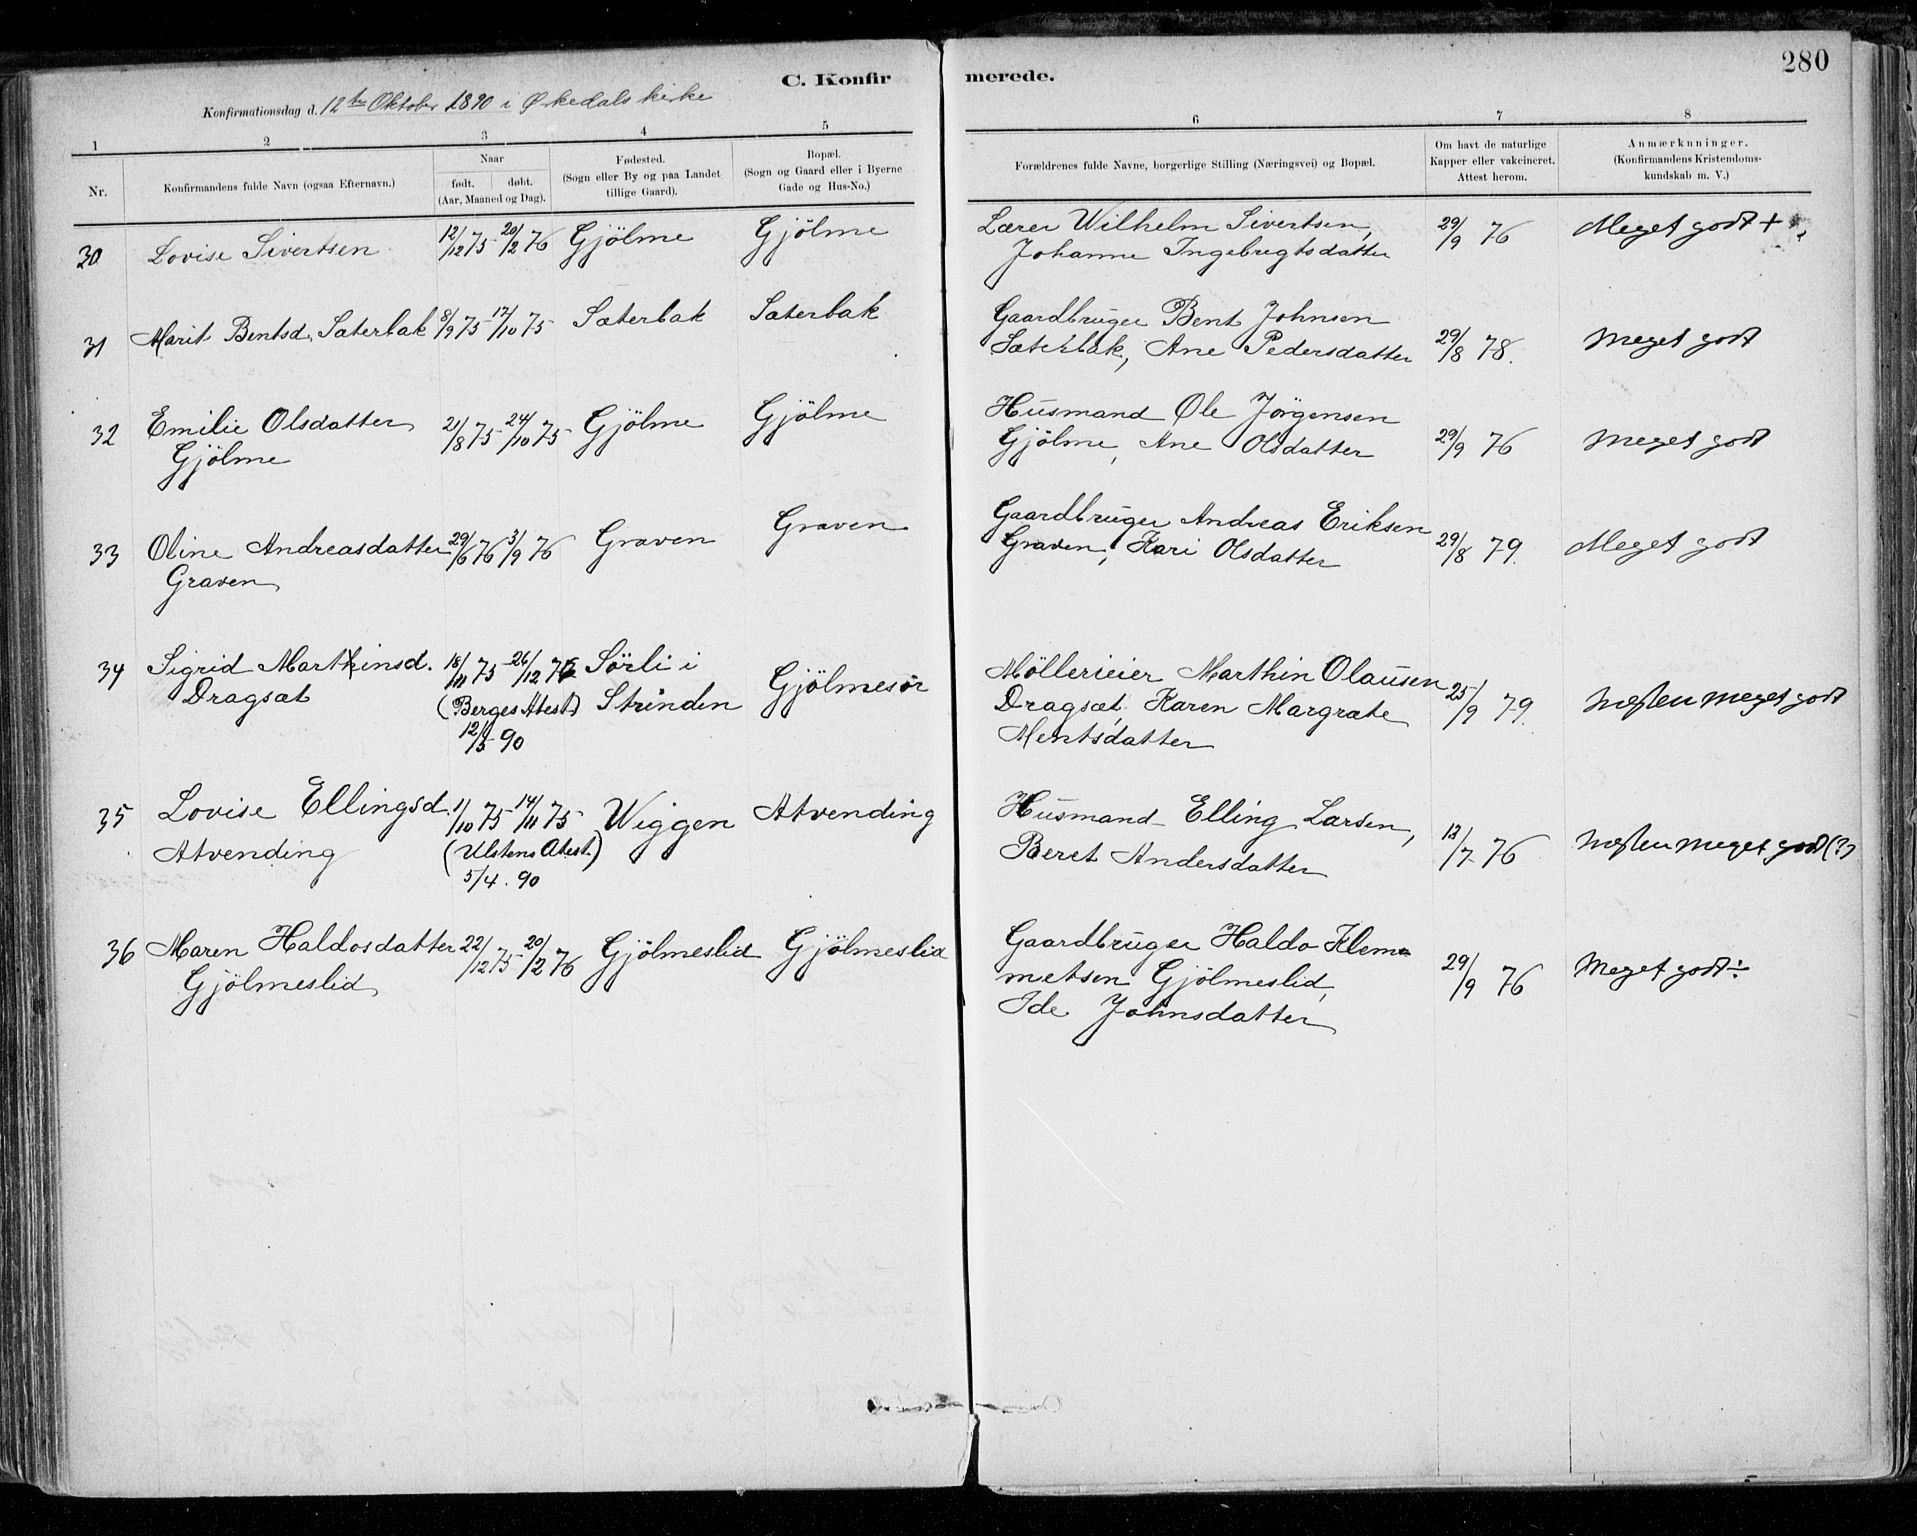 280
C. Konfirmerede.
Konfirmationsdag d. 12te Oktober 1890 i Ørkedals kirke
1 2 3 4 5 6 7 8
Nr.
Konfirmandens fulde Navn (ogsaa Efternavn.)
Naar
født. døbt.
(Aar, Maaned og Dag).
Fødested.
(Sogn eller By og paa Landet
tillige Gaard).
Bopæl.
(Sogn og Gaard eller i Byerne
Gade og Hus-No.)
Forældrenes fulde Navne, borgerlige Stilling (Næringsvei) og Bopæl.
Om havt de naturlige
Kapper eller vakcineret.
Attest herom.
Anmærkninger.
(Konfirmandens Kristendoms-
kundskab m. V.)
30 Lovise Sivertsen 12/12 75 20/2 76 Gjölme Gjölme Lærer Wilhelm Sivertsen, 29/9 76 Meget godt +
Johanne Ingebregtsdatter
31 Marit Bentsd. Sæterbak 8/9 75 17/10 75 Sæterbak Sæterbak Gaardbruger Bent Johnsen
Sæterbak, Ane Pedersdatter 29/8 78. Meget godt
32 Emilie Olsdatter 21/8 75 24/10 75 Gjölme Gjölme Husmand Ole Jörgensen
Gjölme Gjölme, Ane Olsdatter 29/9 76 Meget godt
33 Oline Andreasdatter 29/6 76 3/9 76 Graven Graven Gaardbruger Andreas Eriksen
Graven Graven, Kari Olsdatter 29/8 79. Meget godt
34 Sigrid Marthinsd. 18/11 75 26/12 75 Sörli i Gjölmesör Möllerieier Marthin Olausen
Dragsæt (Berges Atest) Strinden Dragsæt, Karen Margrete 25/9 79. Næsten meget godt
12/5 90 Mentsdatter
35 Lovise Ellingsd. 1/10 75 14/11 75 Wiggen Atvending Husmand Elling Larsen,
Atvending (Ulstens Atest.) Beret Andersdatter 13/7 76 Næsten meget godt (?)
5/4. 90
36 Maren Haldosdatter 22/12 75 20/2 76 Gjölmeslid Gjölmeslid Gaardbruger Haldo Klem-
Gjölmeslid metsen Gjölmeslid, 29/9 76 Meget godt ÷
Ide Johnsdatter